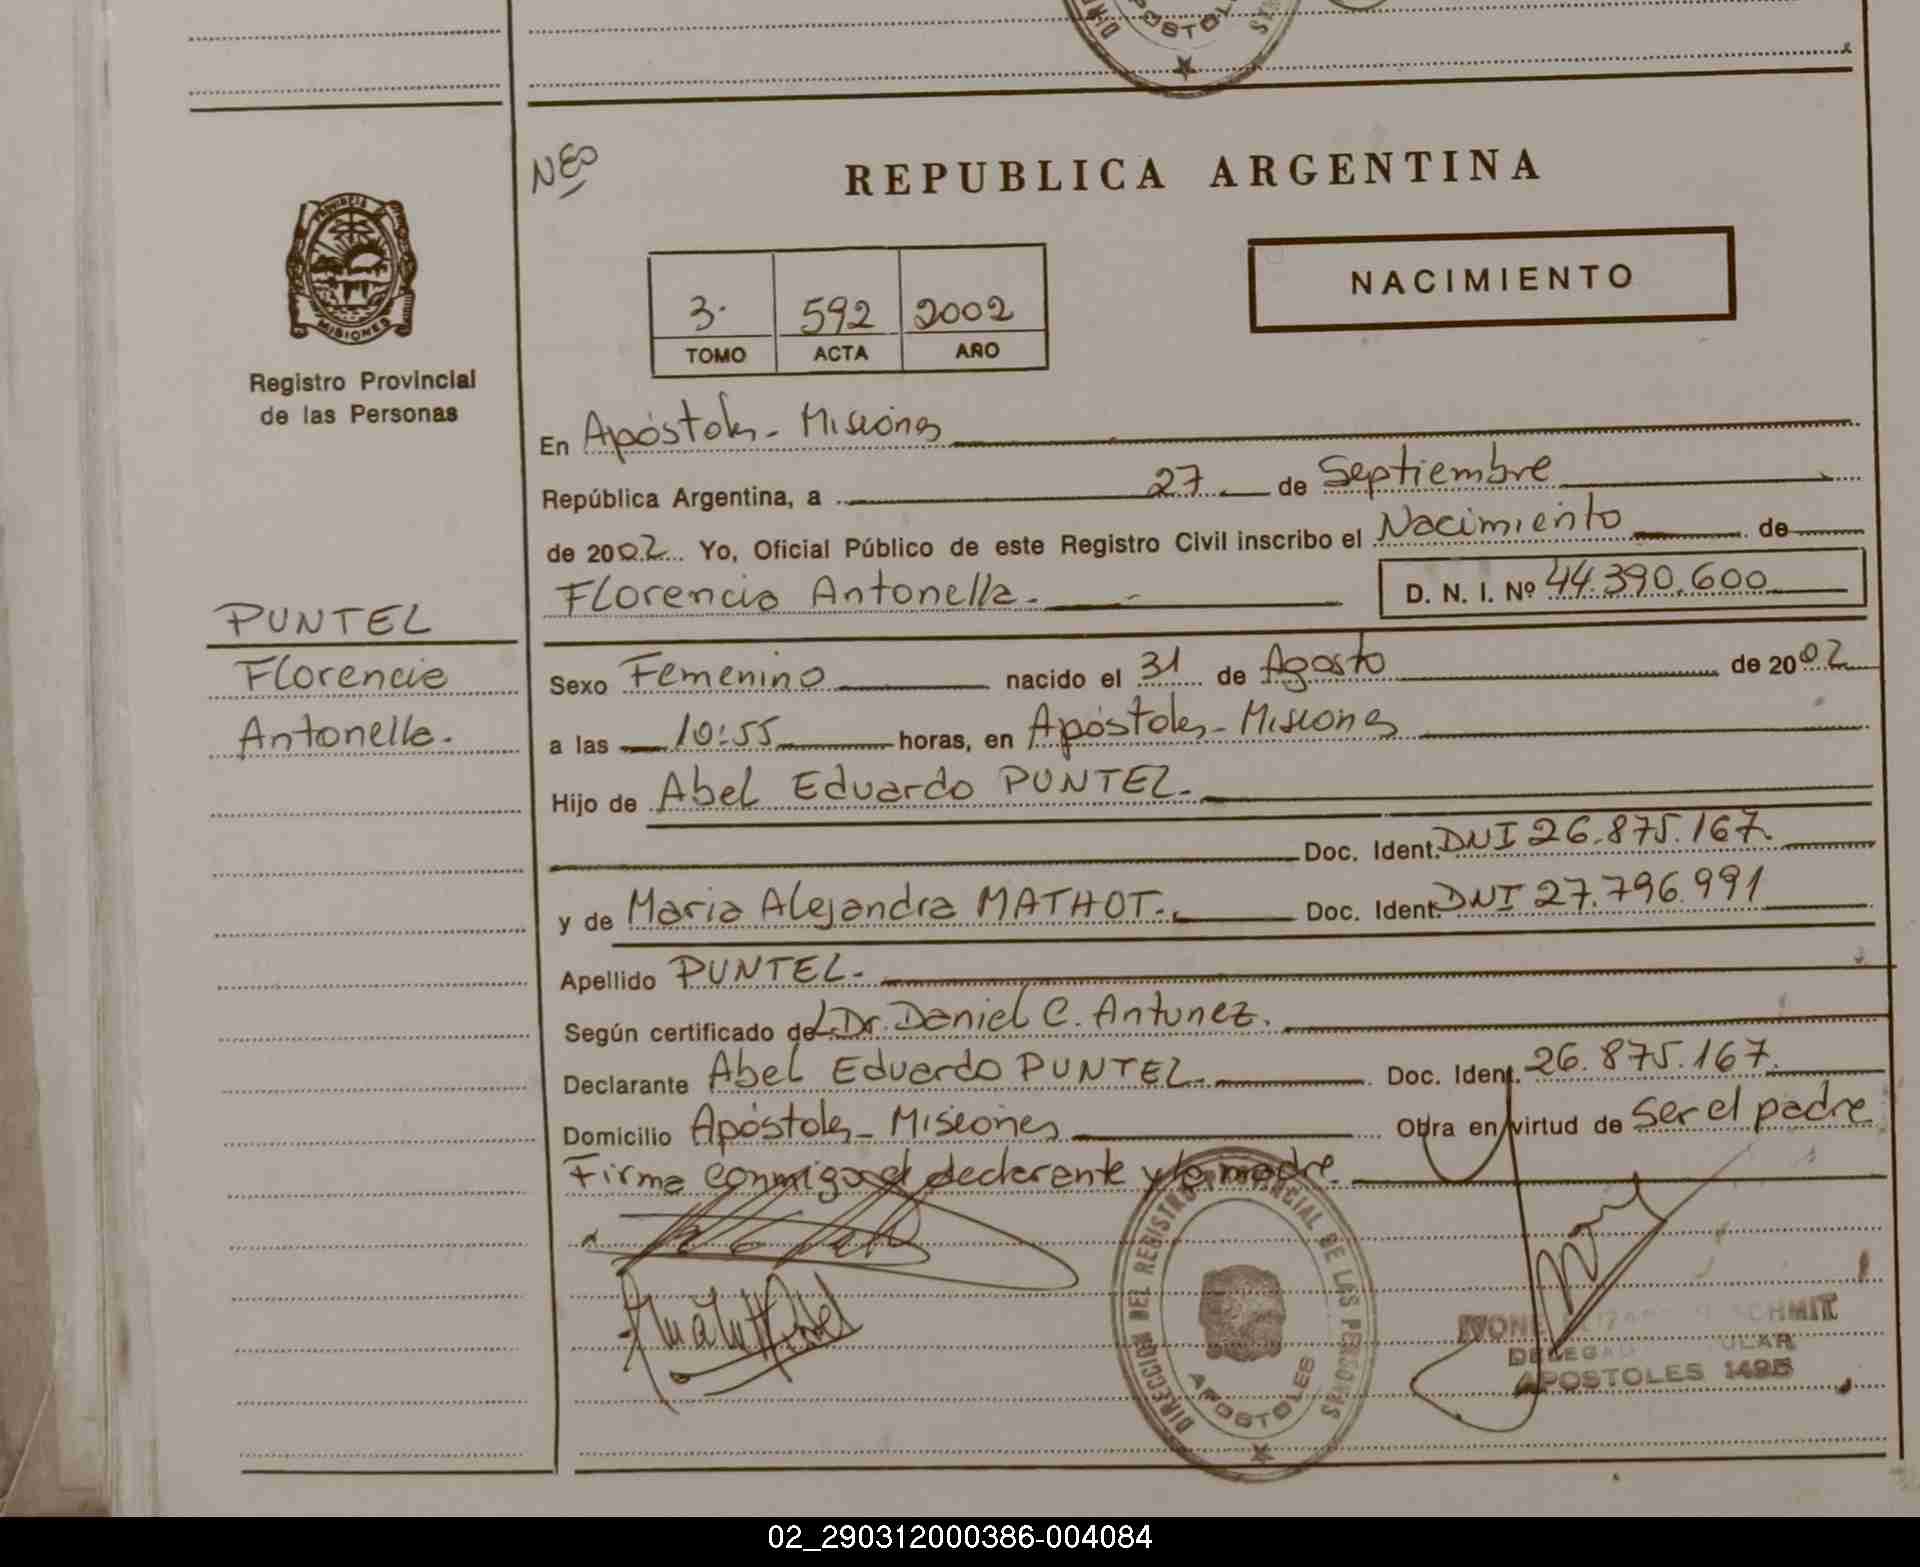 DIRE
APOSTOL
NEO
REPUBLICA ARGENTINA
PROVINCIA DE
MISIONES
Registro Provincial
de las Personas
3.
592
2002
TOMO
ACTA
AÑO
NACIMIENTO
En Apóstoles - Misiones
República Argentina, a 27 de Septiembre
de 2002 Yo, Oficial Público de este Registro Civil inscribo el Nacimiento de
Florencia Antonella.
D. N. I. Nº 44.390.600
PUNTEL
Florencia
Antonella.
Sexo Femenino nacido el 31 de Agosto de 2002
a las 10:55 horas, en Apóstoles - Misiones
Hijo de Abel Eduardo PUNTEL.
Doc. Ident. DNI 26.875.167.
y de Maria Alejandra MATHOT. Doc. Ident. DNI 27.796.991
Apellido PUNTEL.
Según certificado del Dr. Daniel C. Antunez.
Declarante Abel Eduardo PUNTEL. Doc. Ident. 26.875.167.
Domicilio Apóstoles - Misiones Obra en virtud de Ser el padre
Firma conmigo el declarante y la madre.
DIRECCION DEL REGISTRO PROVINCIAL DE LAS PERSONAS
APOSTOLES
APOSTOLES 1495
02_290312000386-004084